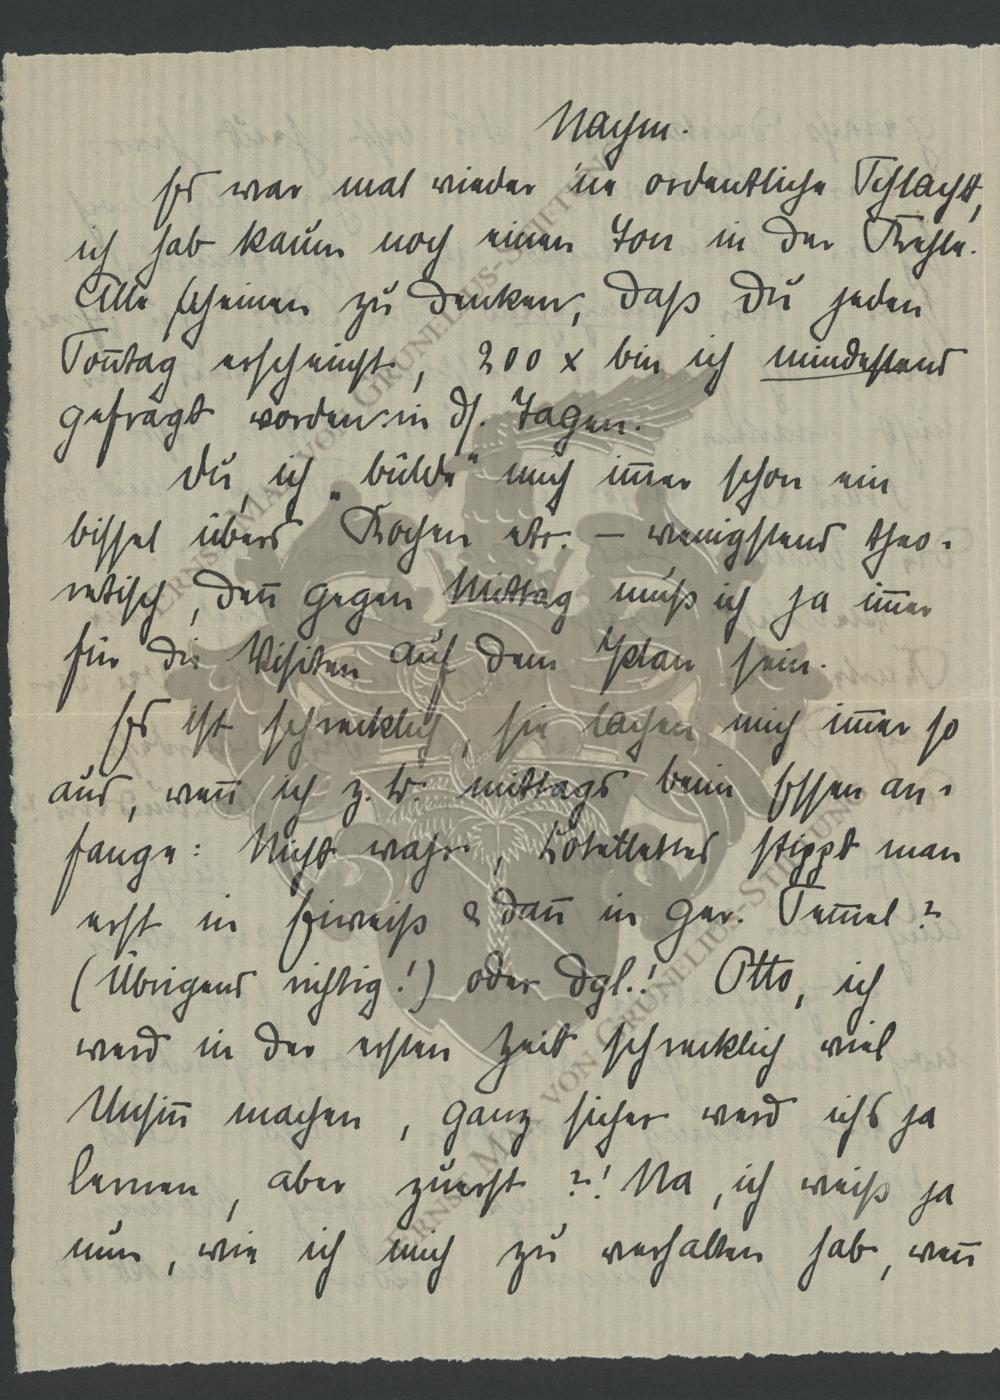 Nachm.
Es war mal wieder 'ne ordentliche Schlacht,
ich hab kaum noch einen Ton in der Kehle.
Alle scheinen zu denken, daß Du jeden
Sonntag erscheinst, 200 x bin ich mindestens
gefragt worden in ds. Tagen.
Du, ich „bilde" mich im̄er schon ein
bissel übers Kochen etc. – wenigstens theo-
retisch, den̄ gegen Mittag muß ich ja im̄er
für die Visiten auf dem Plan sein.
Es ist schrecklich, sie lachen mich im̄er so
aus, wen̄ ich z. B. mittags beim Essen an-
fange: Nicht wahr, Kotelettes stippt man
erst in Eiweiß & dan̄ in ger. Sem̄el?
(Übrigens richtig!) oder dgl.! Otto, ich
werd in der ersten Zeit schrecklich viel
Unsin̄ machen, ganz sicher werd ichs ja
lernen, aber zuerst?! Na, ich weiß ja
nun, wie ich mich zu verhalten hab, wen̄
ERNST MAX VON GRUNELIUS-STIFTUNG
ERNST MAX VON GRUNELIUS-STIFTUNG